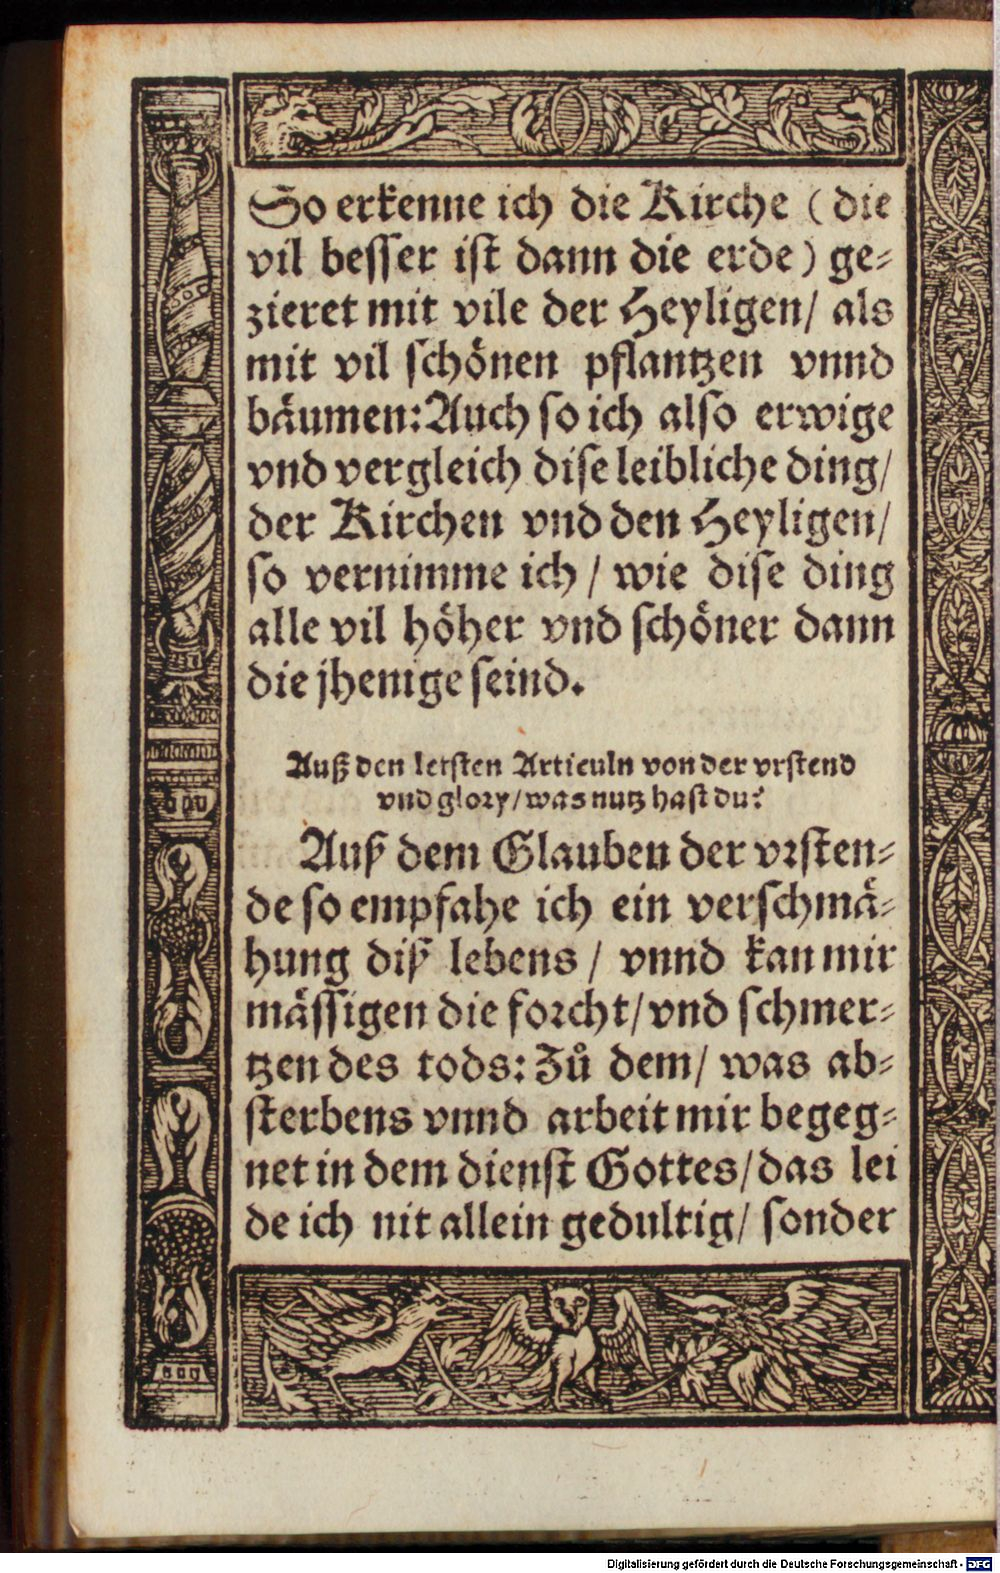 So erkenne ich die Kirche (die
vil besser ist dann die erde) ge⸗
zieret mit vile der Heyligen/ als
mit vil schönen pflantzen vnnd
bäumen: Auch so ich also erwige
vnd vergleich dise leibliche ding/
der Kirchen vnd den Heyligen/
so vernimme ich/ wie dise ding
alle vil höher vnd schöner dann
die jhenige seind.
Auß den letsten Articuln von der vrstend
vnd glory/ was nutz hast du?
Auß dem Glauben der vrsten⸗
de so empfahe ich ein verschmä⸗
hung diß lebens/ vnnd kan mir
mässigen die forcht/ vnd schmer⸗
tzen des tods: Zů dem/ was ab⸗
sterbens vnnd arbeit mir begeg⸗
net in dem dienst Gottes/ das lei
de ich nit allein gedultig/ sonder
Digitalisierung gefördert durch die Deutsche Forschungsgemeinschaft - DFG